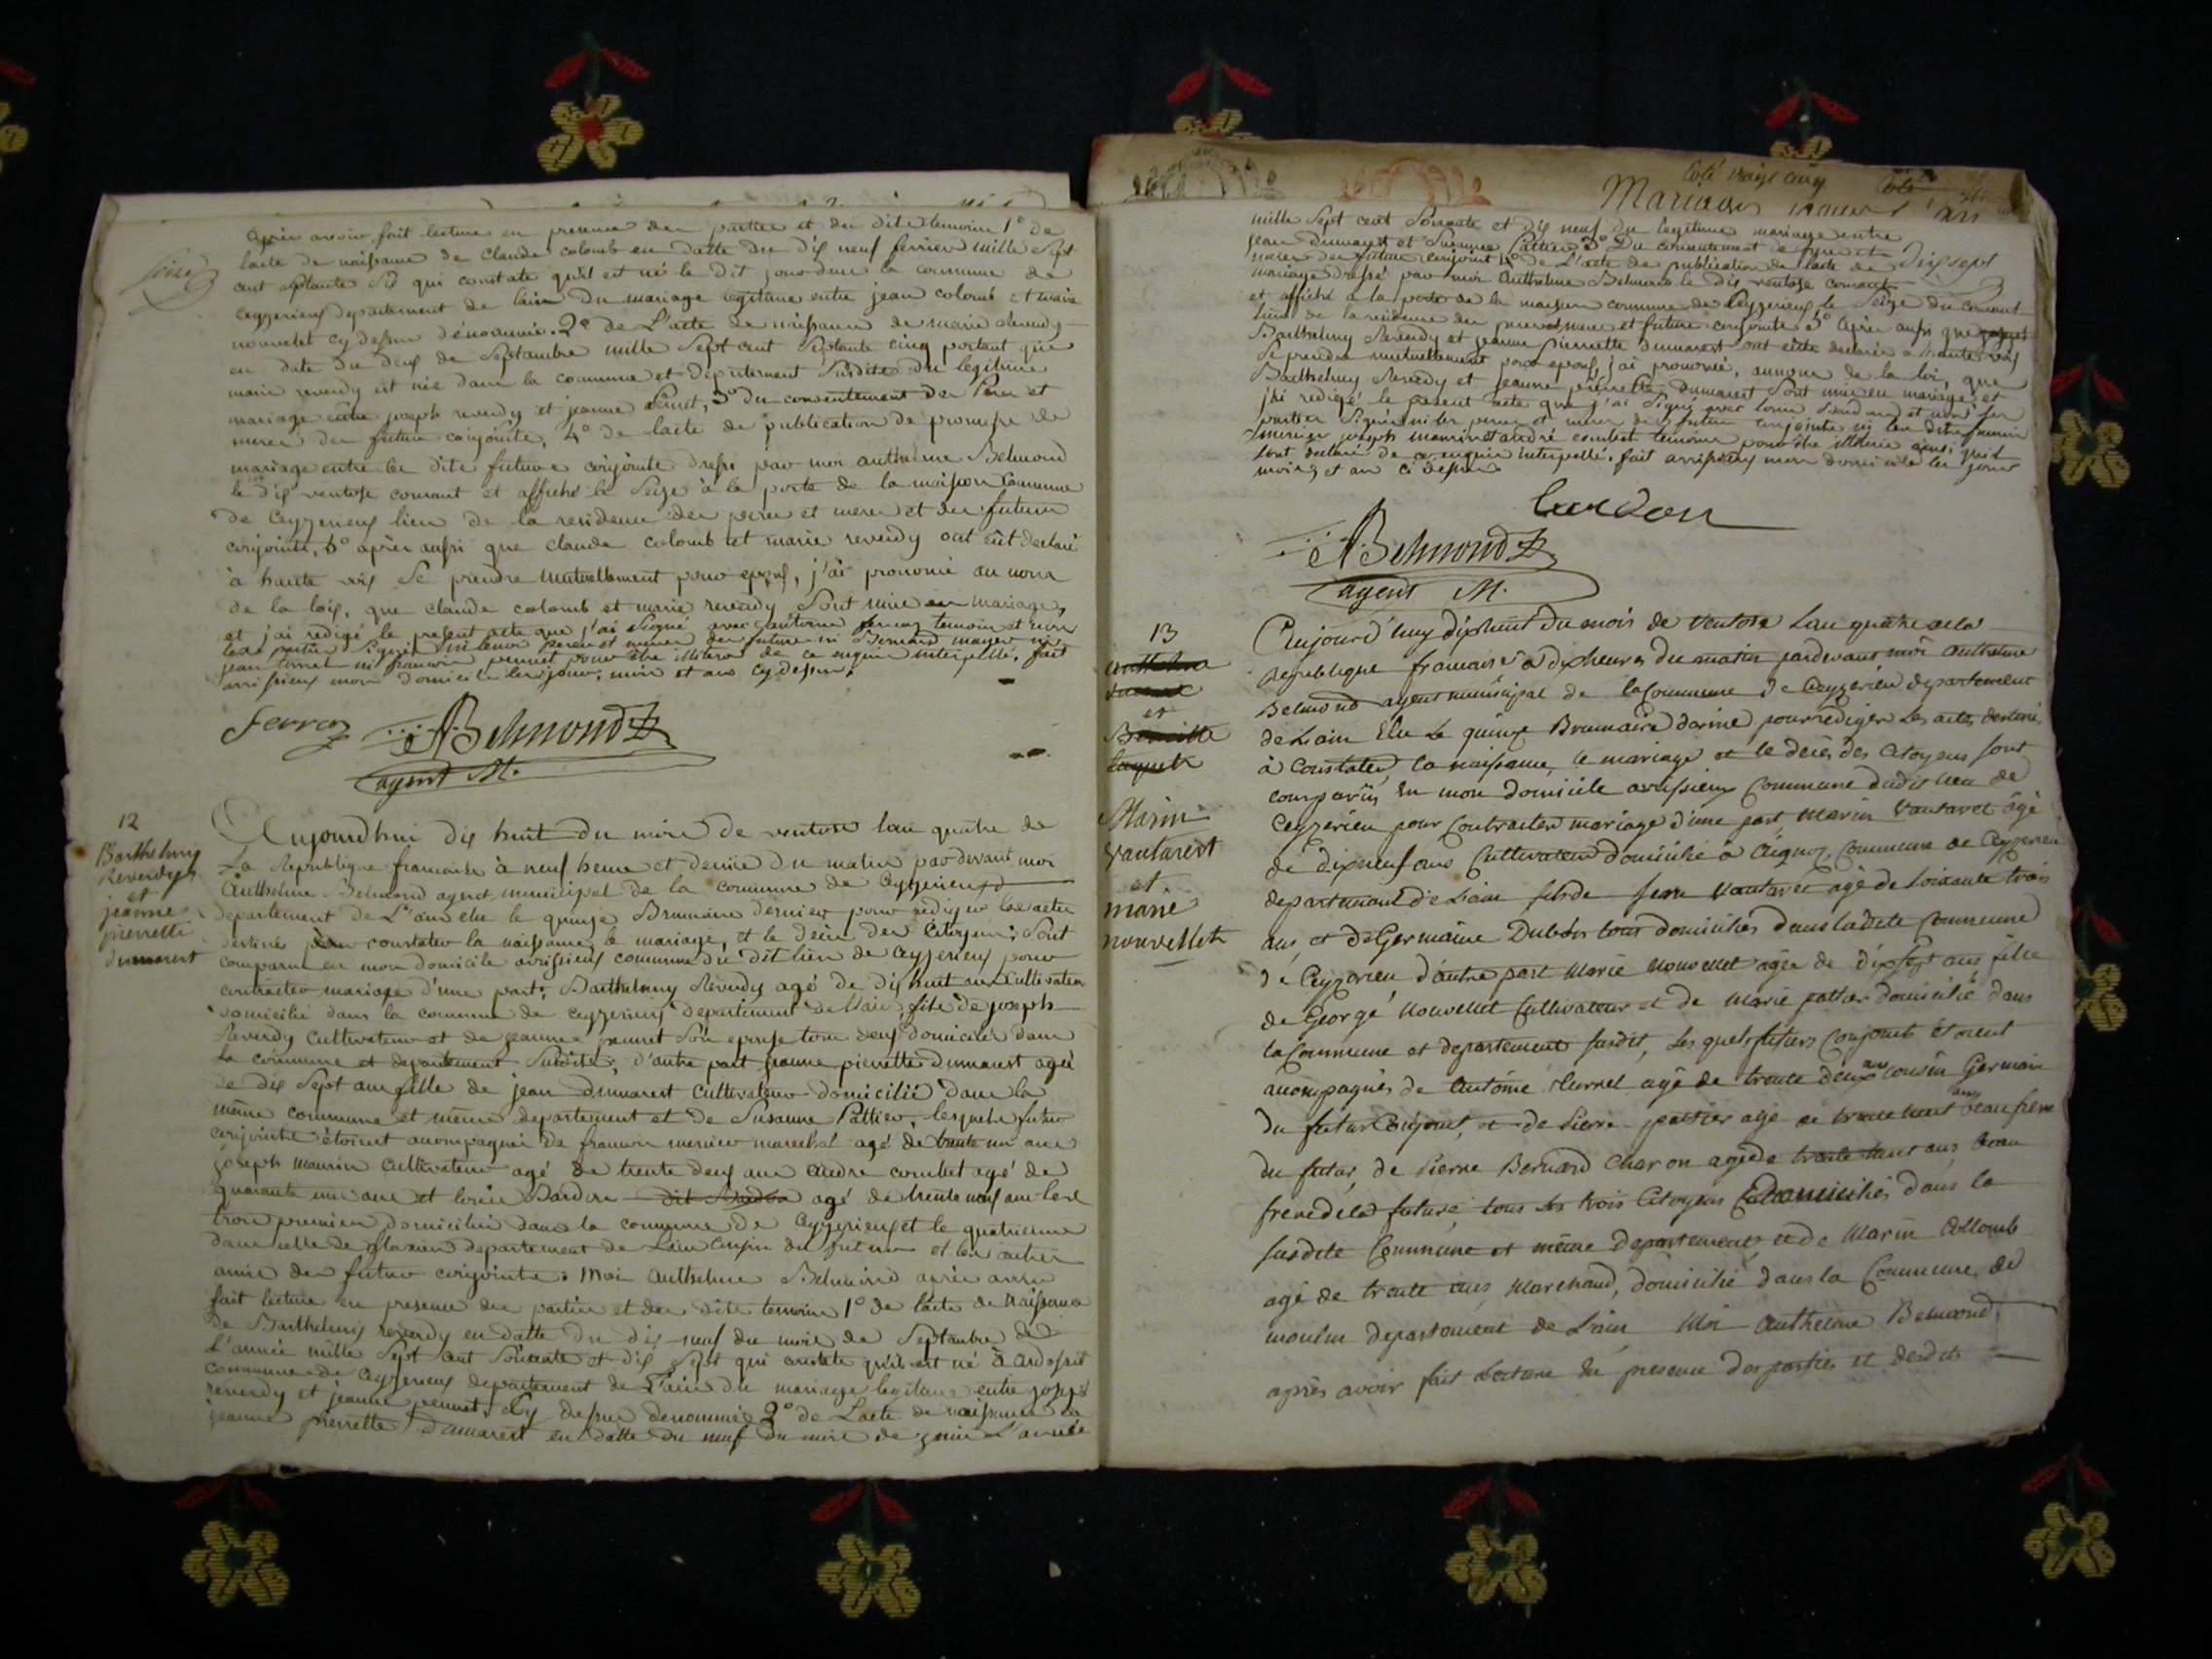 après avoir fait lecture en presence des parties et des dits temoins 1° de
lacte de naissance de Claude colomb en datte du dis neuf fevrier mille Sept
cent septante qui constate qu'il est né le dit jour dans la commune de
ceyzerieux departement de lain du mariage legitime entre jean colomb et marie
nouvelet cy dessus dénommé. 2° de L'acte de naissance de marie reverdy
en date du deux de Septambre mille Sept cent Septante cinq portant que
marie reverdy est née dans la commune et departement Susdites du legitime
mariage entre joseph reverdy et jeanne pennet, 3° du consentement des Peres et
meres des futurs conjoints, 4° de lacte de publication de promesse de
mariage entre les dits futurs conjoints dressé par moi anthelme Belmond
le dis ventose courant et affiché le Seize à la porte de la maison Commune
de Ceyzerieux lieu de la residence des peres et meres et des futurs
conjoints, 5° après aussi que claude colomb et marie reverdy ont eût declaré
à haute vois Se prendre mutuellement pour epoux, j'ai prononcé au nom
de la lois, que claude colomb et marie reverdy Sont unis en mariage,
et j'ai redigé le present acte que j'ai Signé avec antoine ferraz temoin et non
les parties Signé ni leurs peres et meres des futurs ni Bernard mayer ni
jean ni francois pennet pour être illitéré de ce enquis interpellé, fait
avrissieux mon domicile les jour, mois et ans cy dessus.
ferraz
ABelmond
agent M.
12
Barthelemy
Reverdy
et
jeanne
pierrette
dumarest
Aujourdhui dis huit du mois de ventose lan quatre de
La Republique francaise à neuf heure et demie du matin par devant moi
Anthelme Belmond agent municipal de la commune de Ceyzerieux
departement de L'ain elu le quinze Brumaire dernier pour rediger les actes
destinés constater la naissance, le mariage, et le deces des Citoyens; Sont
comparus en mon domicile avrissieux commune du dit lieu de ceyzerieux pour
contracter mariage d'une part; Barthelemy Reverdy agé de dis huit ans Cultivateur
domicilié dans la commune de ceyzerieux departement de l'ain fils de joseph
Reverdy Cultivateur et de jeanne pennet Son epouse tous deux domiciliés dans
la commune et departement Susdites, d'autre part jeanne pierrette Dumarest agée
de dis Sept ans fille de jean dumarest cultivateur domicilié dans la
même commune et même departement et de Susanne Pattier, lesquels futurs
conjoints étoient accompagnés de francois mercier marechal agé de trente un ans
joseph maurin cultivateur agé de trente deux ans andre combet agé de
quarante un ans et louis Bardon dit Bardon agé de trente neuf ans les
trois premiers domiciliés dans la commune de Ceyzerieux et le quatrieme
dans celle de flaxieu departement de Lain Cousin du futur et les autres
amis des futurs conjoints. Moi anthelme Belmond après avoir
fait lecture en presence des parties et des dits temoins 1° de lacte de naissance
de Barthelemy reverdy en datte du dis neuf du mois de Septambre de
L'année mille Sept cent Soixante et dis Sept qui constate qu'il est né à ardosset
commune de Ceyzerieux departement de L'ain du mariage legitime entre joseph
reverdy et jeanne pennet. Cy dessus denommés 2° de Lacte de naissance de
jeanne pierrette Dumarest en datte du neuf du mois de juin L'année
Coté vingt cinq
Mariages
mille Sept cent Soixante et dis neuf du legitime mariage entre
jean dumarest et Susanne Pattier 3° Du consentement de peres et
meres des futurs conjoints 4° de L'acte de publication de lacte de
Dix sept
mariage dressé par moi Anthelme Belmond le dis ventose courant
et affiché à la porte de la maison commune de Ceyzerieux le Seize du courant
lieu de la residence des peres et meres et futurs conjoints 5° après aussi que
Barthelemy Reverdy et jeanne pierrette dumarest ont eûte declarée à haute vois
Se prendre mutuellement pour epoux, j'ai prononcé, au nom de la loi, que
Barthelemy Reverdy et jeanne pierrette Dumarest Sont unis en mariage, et
j'ai redigé le present acte que j'ai Signé avec louis Bardon et non les
parties Signés ni les peres et meres des futurs conjoints ni les dits francois
mercier joseph maurin et andré combet temoins pour être illiterés ainsi quils
l'ont declaré de ce enquis interpellé. fait avrissieux mon domicile les jour
mois et an ci dessus
bardon
ABelmond
agent M.
13
et
Marin
Vautaret
et
marie
nouvellet
Aujourd'huy dixhuit du mois de Ventose Lan quatre de la
republique francaise à dix heures du matin pardevant moi anthelme
Belmond agent municipal de la Commune de Ceyzerieu departement
de Lain Elu Le quinze Brumaire dernier pour rediger Les actes destinés
à Constater la naissance, le mariage et le decès des Citoyens sont
comparus En mon domicile avrissieux Commune dudit lieu de
Ceyzerieu pour Contracter mariage d'une part Marin Vautaret âgé
de dixneuf ans Cultivateur domicilié à Aignoz, Commune de Ceyzerieu
departement de Lain fils de Vautaret agé de soixante trois
ans et de Germaine Dubois tous domiciliés dans ladite Commune
de Ceyzerieu d'autre part Marie Nouvellet agée de dixsept ans fille
de George Nouvellet Cultivateur et de Marie pattier domicilié dans
la Commune et departement susdit, Les quels futurs Conjoints étoient
accompagnés de Antoine agé de trente deux ans cousin Germain
du futur Conjoint, et de Pierre pattier agé de trente huit ans beau frère
du futur, de Pierre Bernard Charon agé de trente huit ans beau
frere de la future, tous les trois Citoyens Domiciliés dans la
susdite Commune et même departement et de Marin Collomb
agé de trente ans Marchand, domicilié dans la Commune de
moulin departement de Lain Moi Anthelme Belmond,
après avoir fait Lecture En presence des parties et desdits